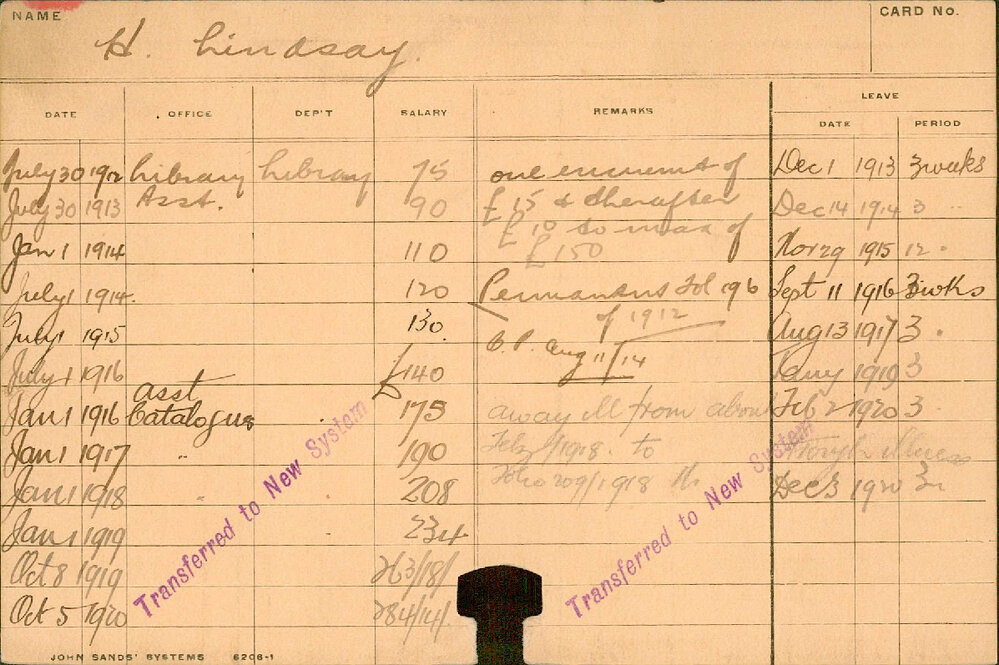 NAME
CARD No.
H. Lindsay.
DATE OFFICE DEP'T SALARY REMARKS LEAVE
DATE PERIOD
July 30 1912 Library Library 75 one increment of Dec 1 1913 3 weeks
July 30 1913 Asst. 90 £15 & thereafter Dec 14 1914 3 "
£10 to max of
Jan 1 1914 110 £150 Nov 29 1915 12 "
July 1 1914. 120 Permanent Fol 196 Sept 11 1916 3 wks
of 1912
July 1 1915 130. Aug 13 1917 3 "
C.P. Aug 11/14
July 1 1916 £140 1919 3
Asst
Jan 1 1916 Catalogue 175 away ill from about Feb 2 1920 3
Jan 1 1917 " 190 1918. to illness
Jan 1 1918 " 208 209/1918 Dec 3 1920
Jan 1 1919 234
Oct 8 1919 263/18/
Oct 5 1920 284/14/.
Transferred to New System
Transferred to New System
JOHN SANDS' SYSTEMS 6206-1